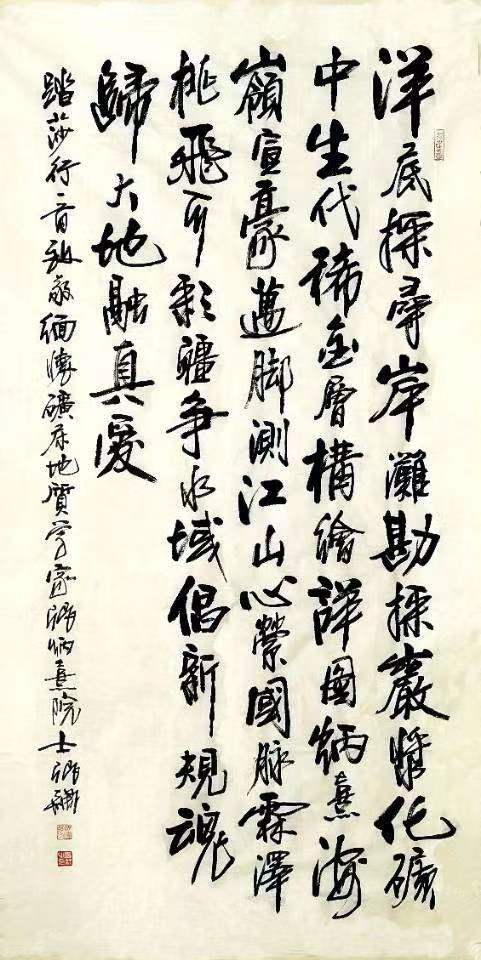 洋底探尋岸灘勘探巖漿化礦
中生代稀金層構繪詳圖炳熹海
嶺宣豪邁脚測江山心縈國脉霖澤
桃飛彩疆争水域倡新規魂
歸大地融真愛
踏莎行一首敬緬懷礦床地質學家張炳熹院士